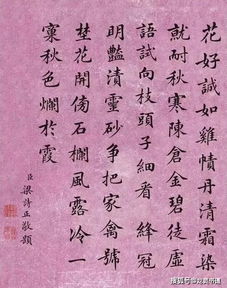 花好誠如雞幘丹清霜染
就耐秋寒陳倉金碧徒虛
語試向枝頭子細看 絳冠
明豔漬靈砂爭把家禽號
埜花開傍石欄風露冷一
窠秋色爛於霞
臣梁詩正敬題
搜狐号@